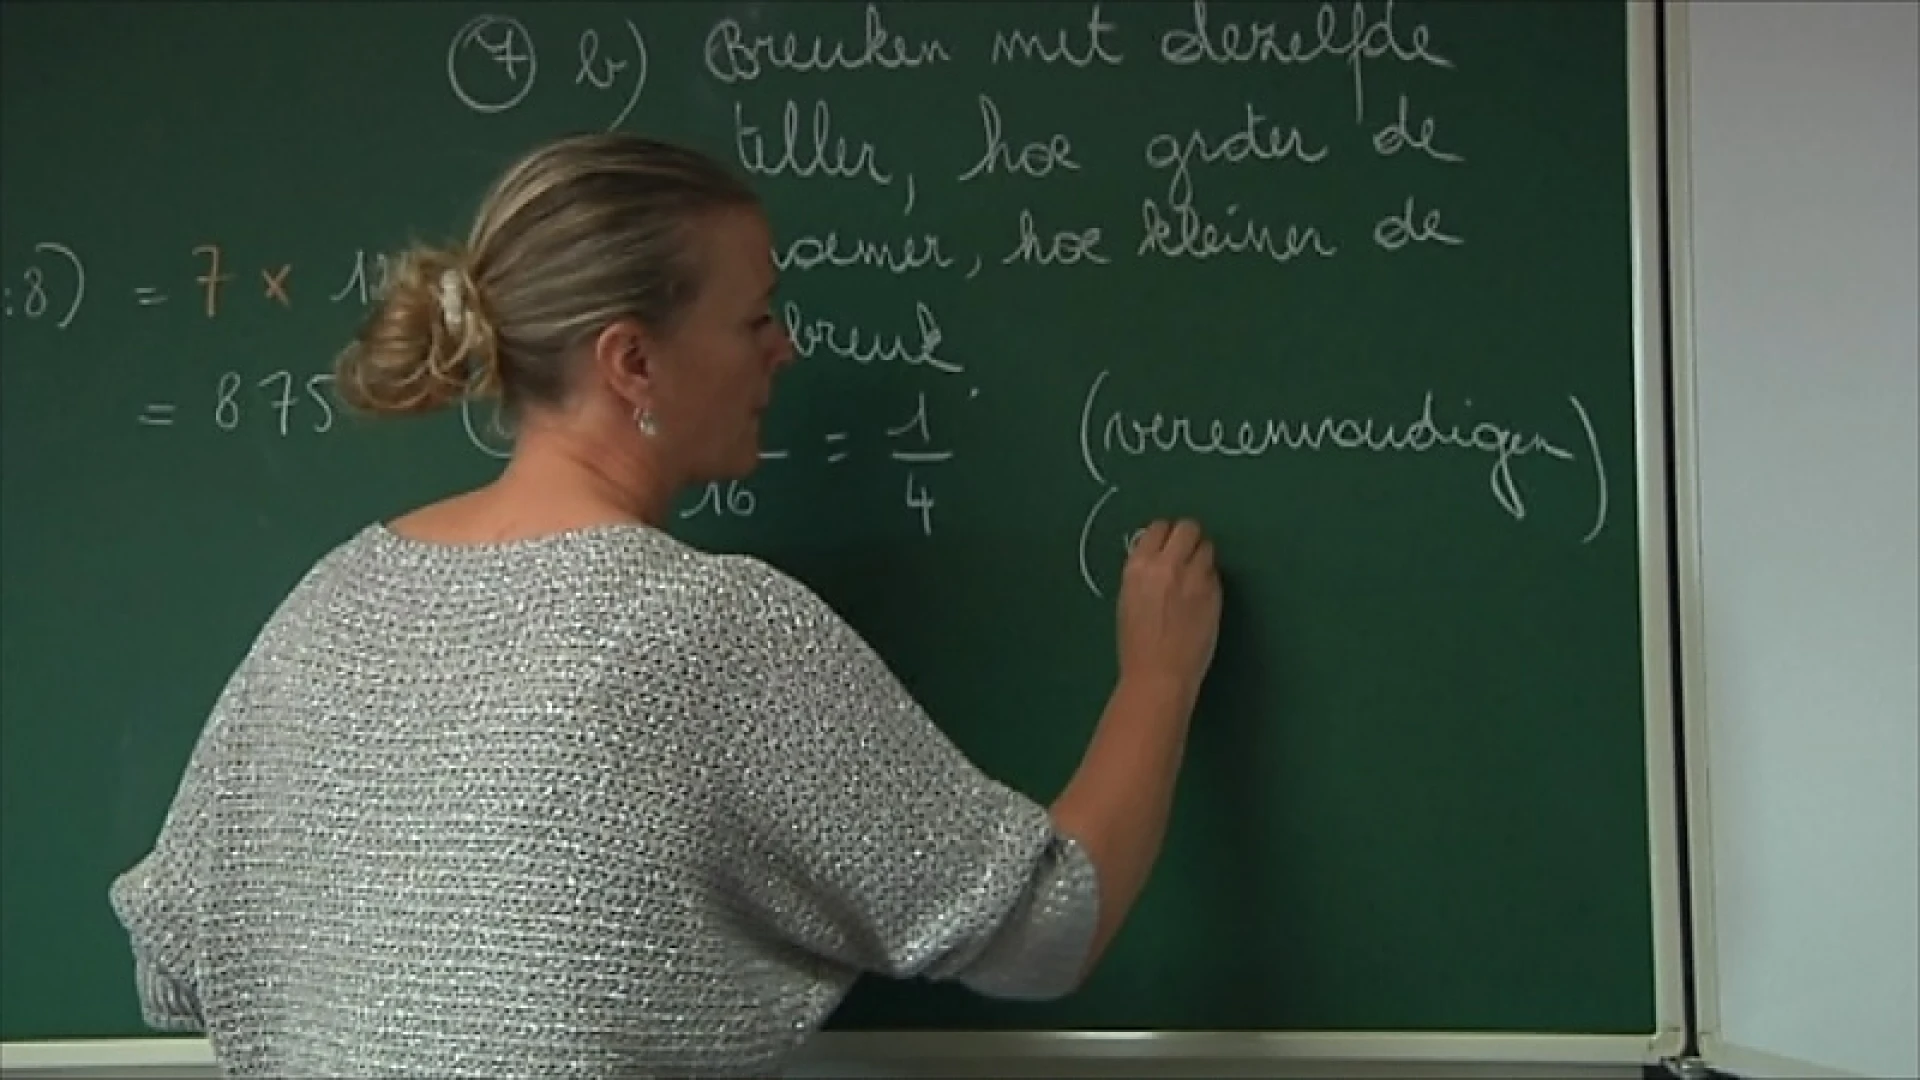 7 b) Breuken met dezelfde
teller, hoe groter de
noemer, hoe kleiner de
breuk.
:8) = 7 x
= 875
16 = 1/4
(vereenvoudigen)
(